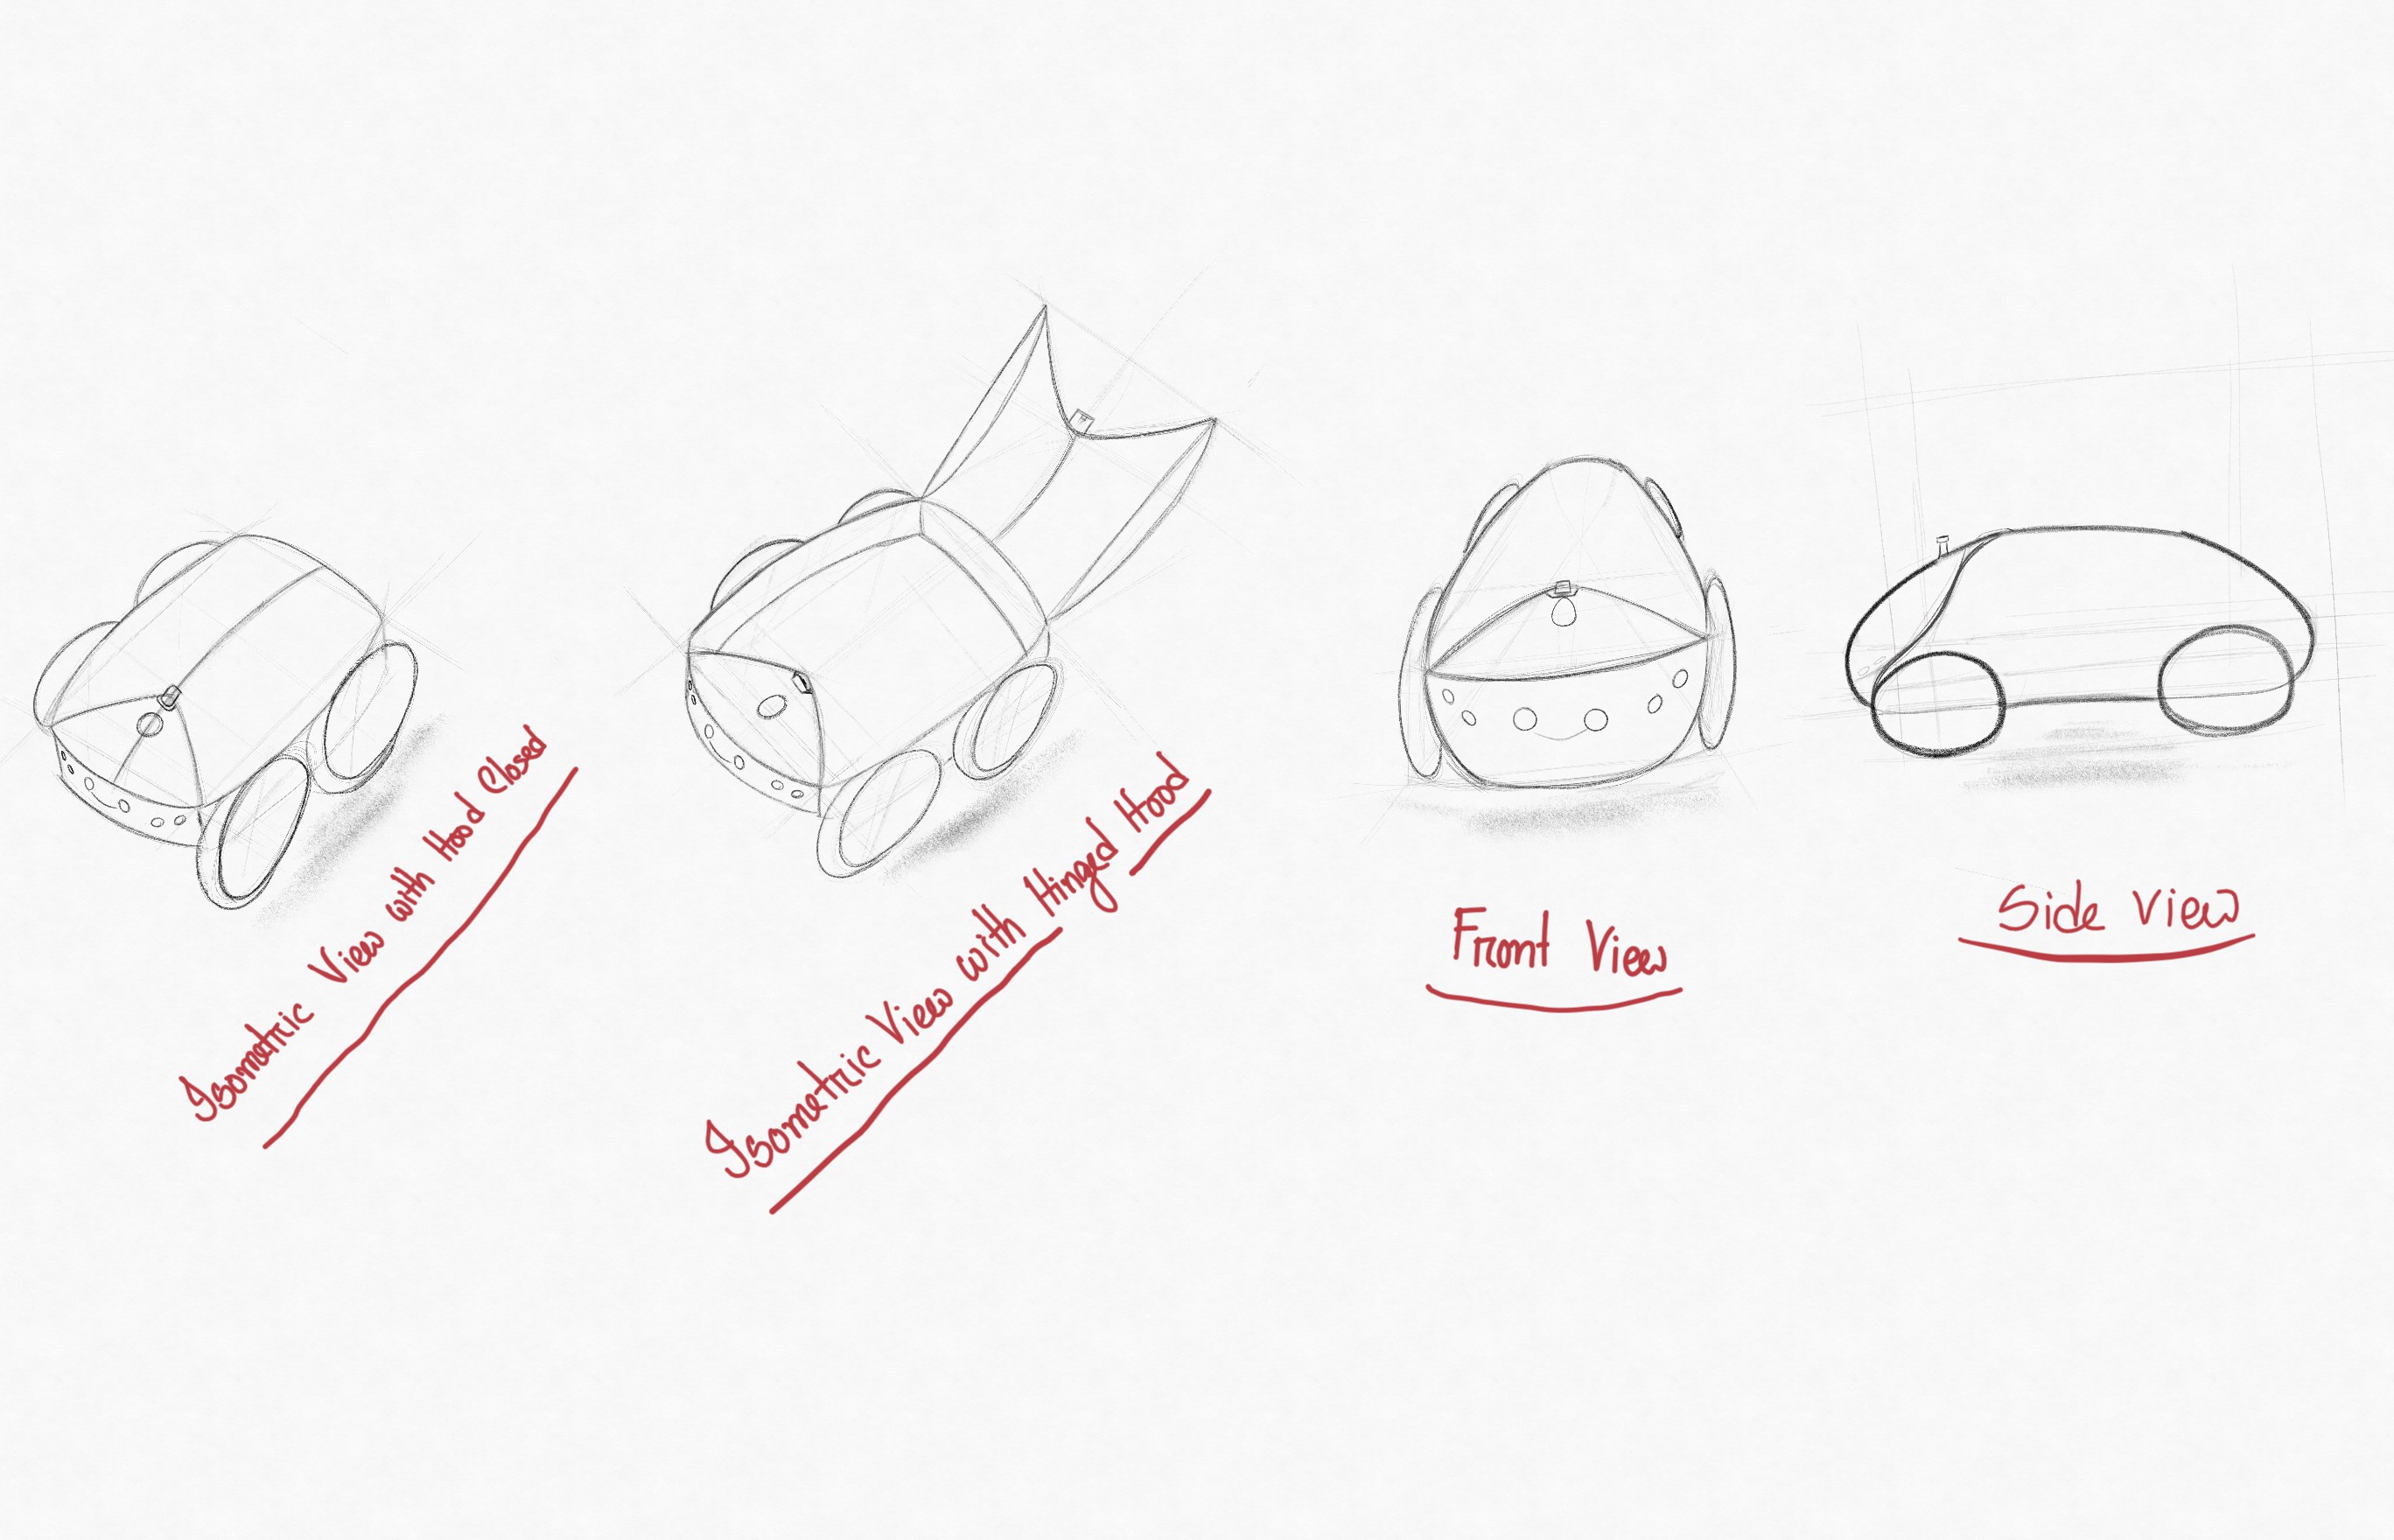 Isometric View with Hood Closed
Isometric View with Hinged Hood
Front View
Side View